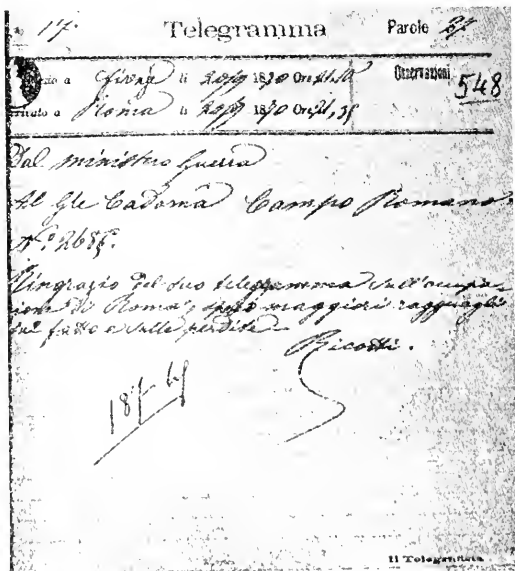 17. Telegramma Parole 27
a Firenze li 20/9 1870 Ore Osservazioni 548
a Roma li 20/9 1870 Ore 21,35
Dal ministero Guerra
Al Gle Cadorna Campo Romano.
N.º 2685.
Ringrazio del suo telegramma sull'occupa-
zione di Roma, spero maggiori ragguagli
sul fatto e sulle perdite.
Ricotti.
Il Telegrafista